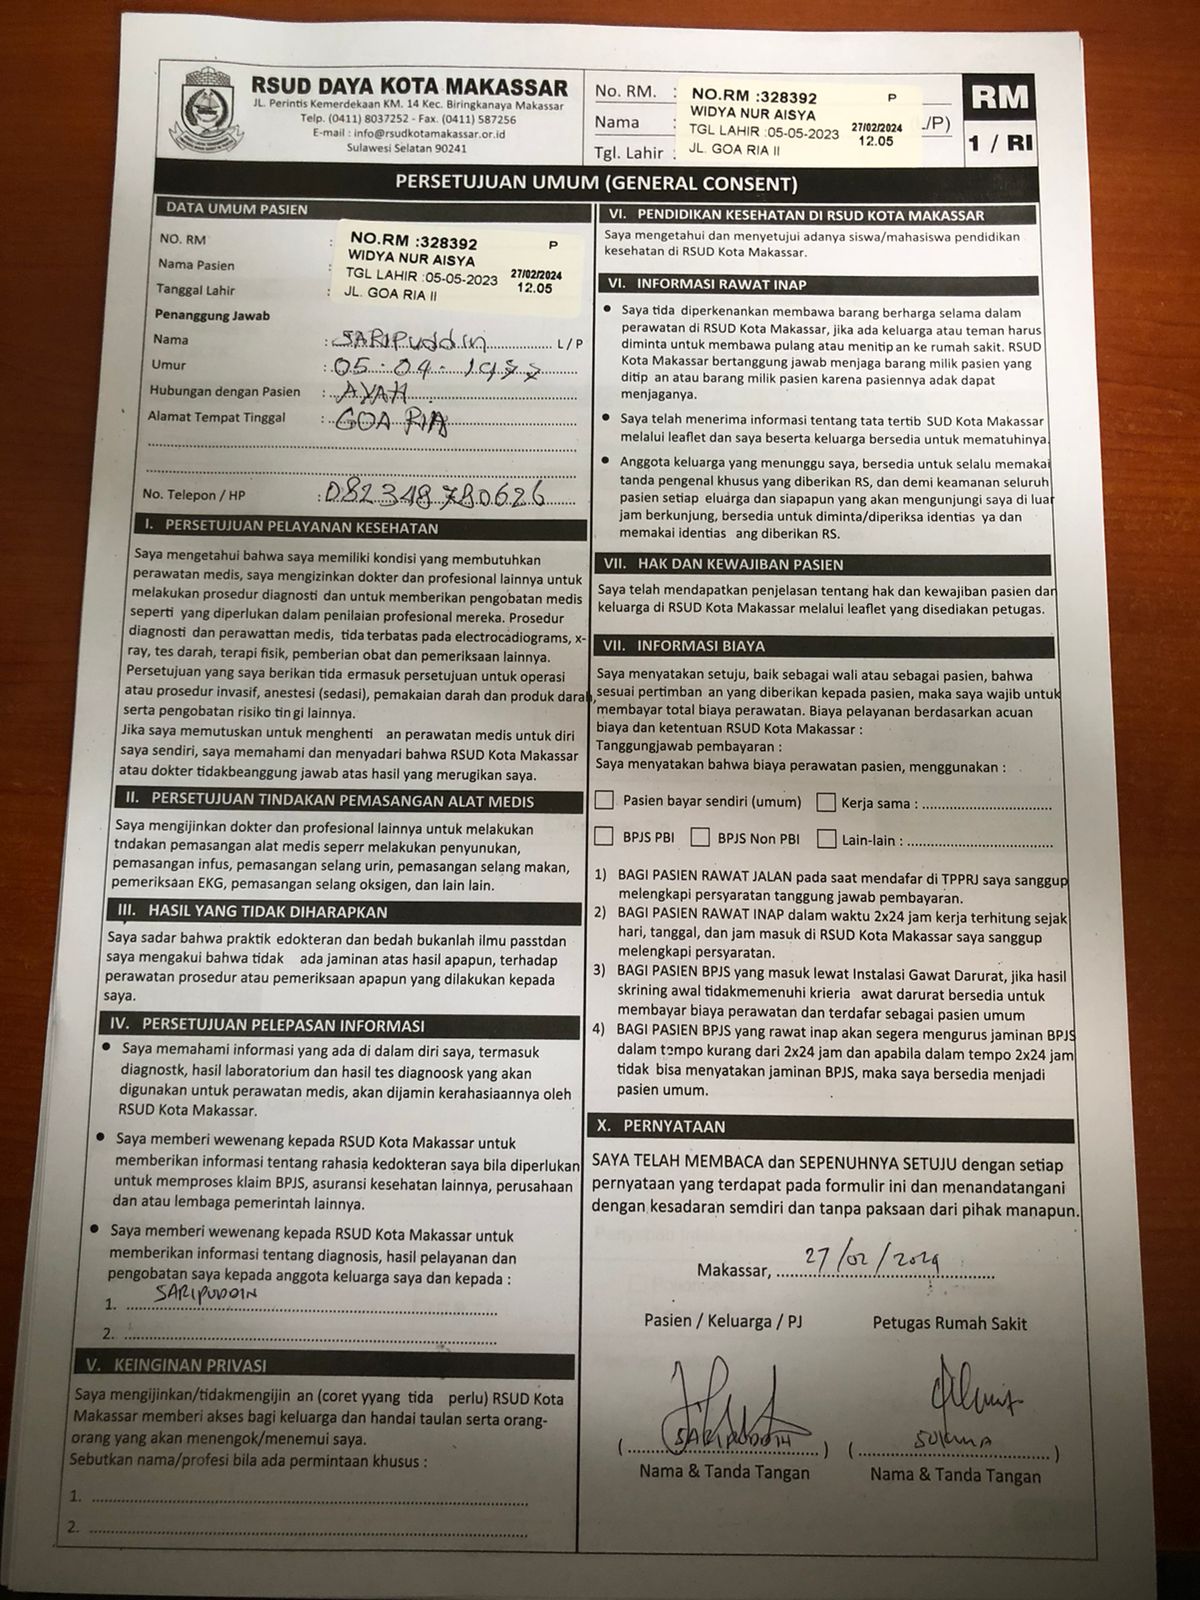 RSUD DAYA KOTA MAKASSAR
JL. Perintis Kemerdekaan KM. 14 Kec. Biringkanaya Makassar
Telp. (0411) 8037252 - Fax. (0411) 587256
E-mail : info@rsudkotamakassar.or.id
Sulawesi Selatan 90241
No. RM. :
Nama :
Tgl. Lahir :
NO.RM :328392 P
WIDYA NUR AISYA
TGL LAHIR :05-05-2023 27/02/2024
JL. GOA RIA II 12.05
/P)
RM
1 / RI
PERSETUJUAN UMUM (GENERAL CONSENT)
DATA UMUM PASIEN
NO. RM :
Nama Pasien :
Tanggal Lahir :
NO.RM :328392 P
WIDYA NUR AISYA
TGL LAHIR :05-05-2023 27/02/2024
JL. GOA RIA II 12.05
Penanggung Jawab
Nama : SARIPuddin L / P
Umur : 05 - 04 - 1977
Hubungan dengan Pasien : AYAH
Alamat Tempat Tinggal : GOA RIA
No. Telepon / HP : 082348780626
I. PERSETUJUAN PELAYANAN KESEHATAN
Saya mengetahui bahwa saya memiliki kondisi yang membutuhkan
perawatan medis, saya mengizinkan dokter dan profesional lainnya untuk
melakukan prosedur diagnosti dan untuk memberikan pengobatan medis
seperti yang diperlukan dalam penilaian profesional mereka. Prosedur
diagnosti dan perawattan medis, tida terbatas pada electrocadiograms, x-
ray, tes darah, terapi fisik, pemberian obat dan pemeriksaan lainnya.
Persetujuan yang saya berikan tida ermasuk persetujuan untuk operasi
atau prosedur invasif, anestesi (sedasi), pemakaian darah dan produk darah,
serta pengobatan risiko tin gi lainnya.
Jika saya memutuskan untuk menghenti an perawatan medis untuk diri
saya sendiri, saya memahami dan menyadari bahwa RSUD Kota Makassar
atau dokter tidakbeanggung jawab atas hasil yang merugikan saya.
II. PERSETUJUAN TINDAKAN PEMASANGAN ALAT MEDIS
Saya mengijinkan dokter dan profesional lainnya untuk melakukan
tndakan pemasangan alat medis seperr melakukan penyunukan,
pemasangan infus, pemasangan selang urin, pemasangan selang makan,
pemeriksaan EKG, pemasangan selang oksigen, dan lain lain.
III. HASIL YANG TIDAK DIHARAPKAN
Saya sadar bahwa praktik edokteran dan bedah bukanlah ilmu passtdan
saya mengakui bahwa tidak ada jaminan atas hasil apapun, terhadap
perawatan prosedur atau pemeriksaan apapun yang dilakukan kepada
saya.
IV. PERSETUJUAN PELEPASAN INFORMASI
• Saya memahami informasi yang ada di dalam diri saya, termasuk
diagnostk, hasil laboratorium dan hasil tes diagnoosk yang akan
digunakan untuk perawatan medis, akan dijamin kerahasiaannya oleh
RSUD Kota Makassar.
• Saya memberi wewenang kepada RSUD Kota Makassar untuk
memberikan informasi tentang rahasia kedokteran saya bila diperlukan
untuk memproses klaim BPJS, asuransi kesehatan lainnya, perusahaan
dan atau lembaga pemerintah lainnya.
• Saya memberi wewenang kepada RSUD Kota Makassar untuk
memberikan informasi tentang diagnosis, hasil pelayanan dan
pengobatan saya kepada anggota keluarga saya dan kepada :
1. SARIPUDDIN
2.
V. KEINGINAN PRIVASI
Saya mengijinkan/tidakmengijin an (coret yyang tida perlu) RSUD Kota
Makassar memberi akses bagi keluarga dan handai taulan serta orang-
orang yang akan menengok/menemui saya.
Sebutkan nama/profesi bila ada permintaan khusus :
1.
2.
VI. PENDIDIKAN KESEHATAN DI RSUD KOTA MAKASSAR
Saya mengetahui dan menyetujui adanya siswa/mahasiswa pendidikan
kesehatan di RSUD Kota Makassar.
VI. INFORMASI RAWAT INAP
• Saya tida diperkenankan membawa barang berharga selama dalam
perawatan di RSUD Kota Makassar, jika ada keluarga atau teman harus
diminta untuk membawa pulang atau menitip an ke rumah sakit. RSUD
Kota Makassar bertanggung jawab menjaga barang milik pasien yang
ditip an atau barang milik pasien karena pasiennya adak dapat
menjaganya.
• Saya telah menerima informasi tentang tata tertib SUD Kota Makassar
melalui leaflet dan saya beserta keluarga bersedia untuk mematuhinya.
• Anggota keluarga yang menunggu saya, bersedia untuk selalu memakai
tanda pengenal khusus yang diberikan RS, dan demi keamanan seluruh
pasien setiap eluárga dan siapapun yang akan mengunjungi saya di luar
jam berkunjung, bersedia untuk diminta/diperiksa identias ya dan
memakai identias ang diberikan RS.
VII. HAK DAN KEWAJIBAN PASIEN
Saya telah mendapatkan penjelasan tentang hak dan kewajiban pasien dan
keluarga di RSUD Kota Makassar melalui leaflet yang disediakan petugas.
VII. INFORMASI BIAYA
Saya menyatakan setuju, baik sebagai wali atau sebagai pasien, bahwa
sesuai pertimban an yang diberikan kepada pasien, maka saya wajib untuk
membayar total biaya perawatan. Biaya pelayanan berdasarkan acuan
biaya dan ketentuan RSUD Kota Makassar :
Tanggungjawab pembayaran :
Saya menyatakan bahwa biaya perawatan pasien, menggunakan :
Pasien bayar sendiri (umum) Kerja sama :
BPJS PBI BPJS Non PBI Lain-lain :
1) BAGI PASIEN RAWAT JALAN pada saat mendafar di TPPRJ saya sanggup
melengkapi persyaratan tanggung jawab pembayaran.
2) BAGI PASIEN RAWAT INAP dalam waktu 2x24 jam kerja terhitung sejak
hari, tanggal, dan jam masuk di RSUD Kota Makassar saya sanggup
melengkapi persyaratan.
3) BAGI PASIEN BPJS yang masuk lewat Instalasi Gawat Darurat, jika hasil
skrining awal tidakmemenuhi krieria awat darurat bersedia untuk
membayar biaya perawatan dan terdafar sebagai pasien umum
4) BAGI PASIEN BPJS yang rawat inap akan segera mengurus jaminan BPJS
dalam tempo kurang dari 2x24 jam dan apabila dalam tempo 2x24 jam
tidak bisa menyatakan jaminan BPJS, maka saya bersedia menjadi
pasien umum.
X. PERNYATAAN
SAYA TELAH MEMBACA dan SEPENUHNYA SETUJU dengan setiap
pernyataan yang terdapat pada formulir ini dan menandatangani
dengan kesadaran semdiri dan tanpa paksaan dari pihak manapun.
Makassar, 27/02/2024
Pasien / Keluarga / PJ Petugas Rumah Sakit
(SARIPUDDIN) ( )
Nama & Tanda Tangan Nama & Tanda Tangan